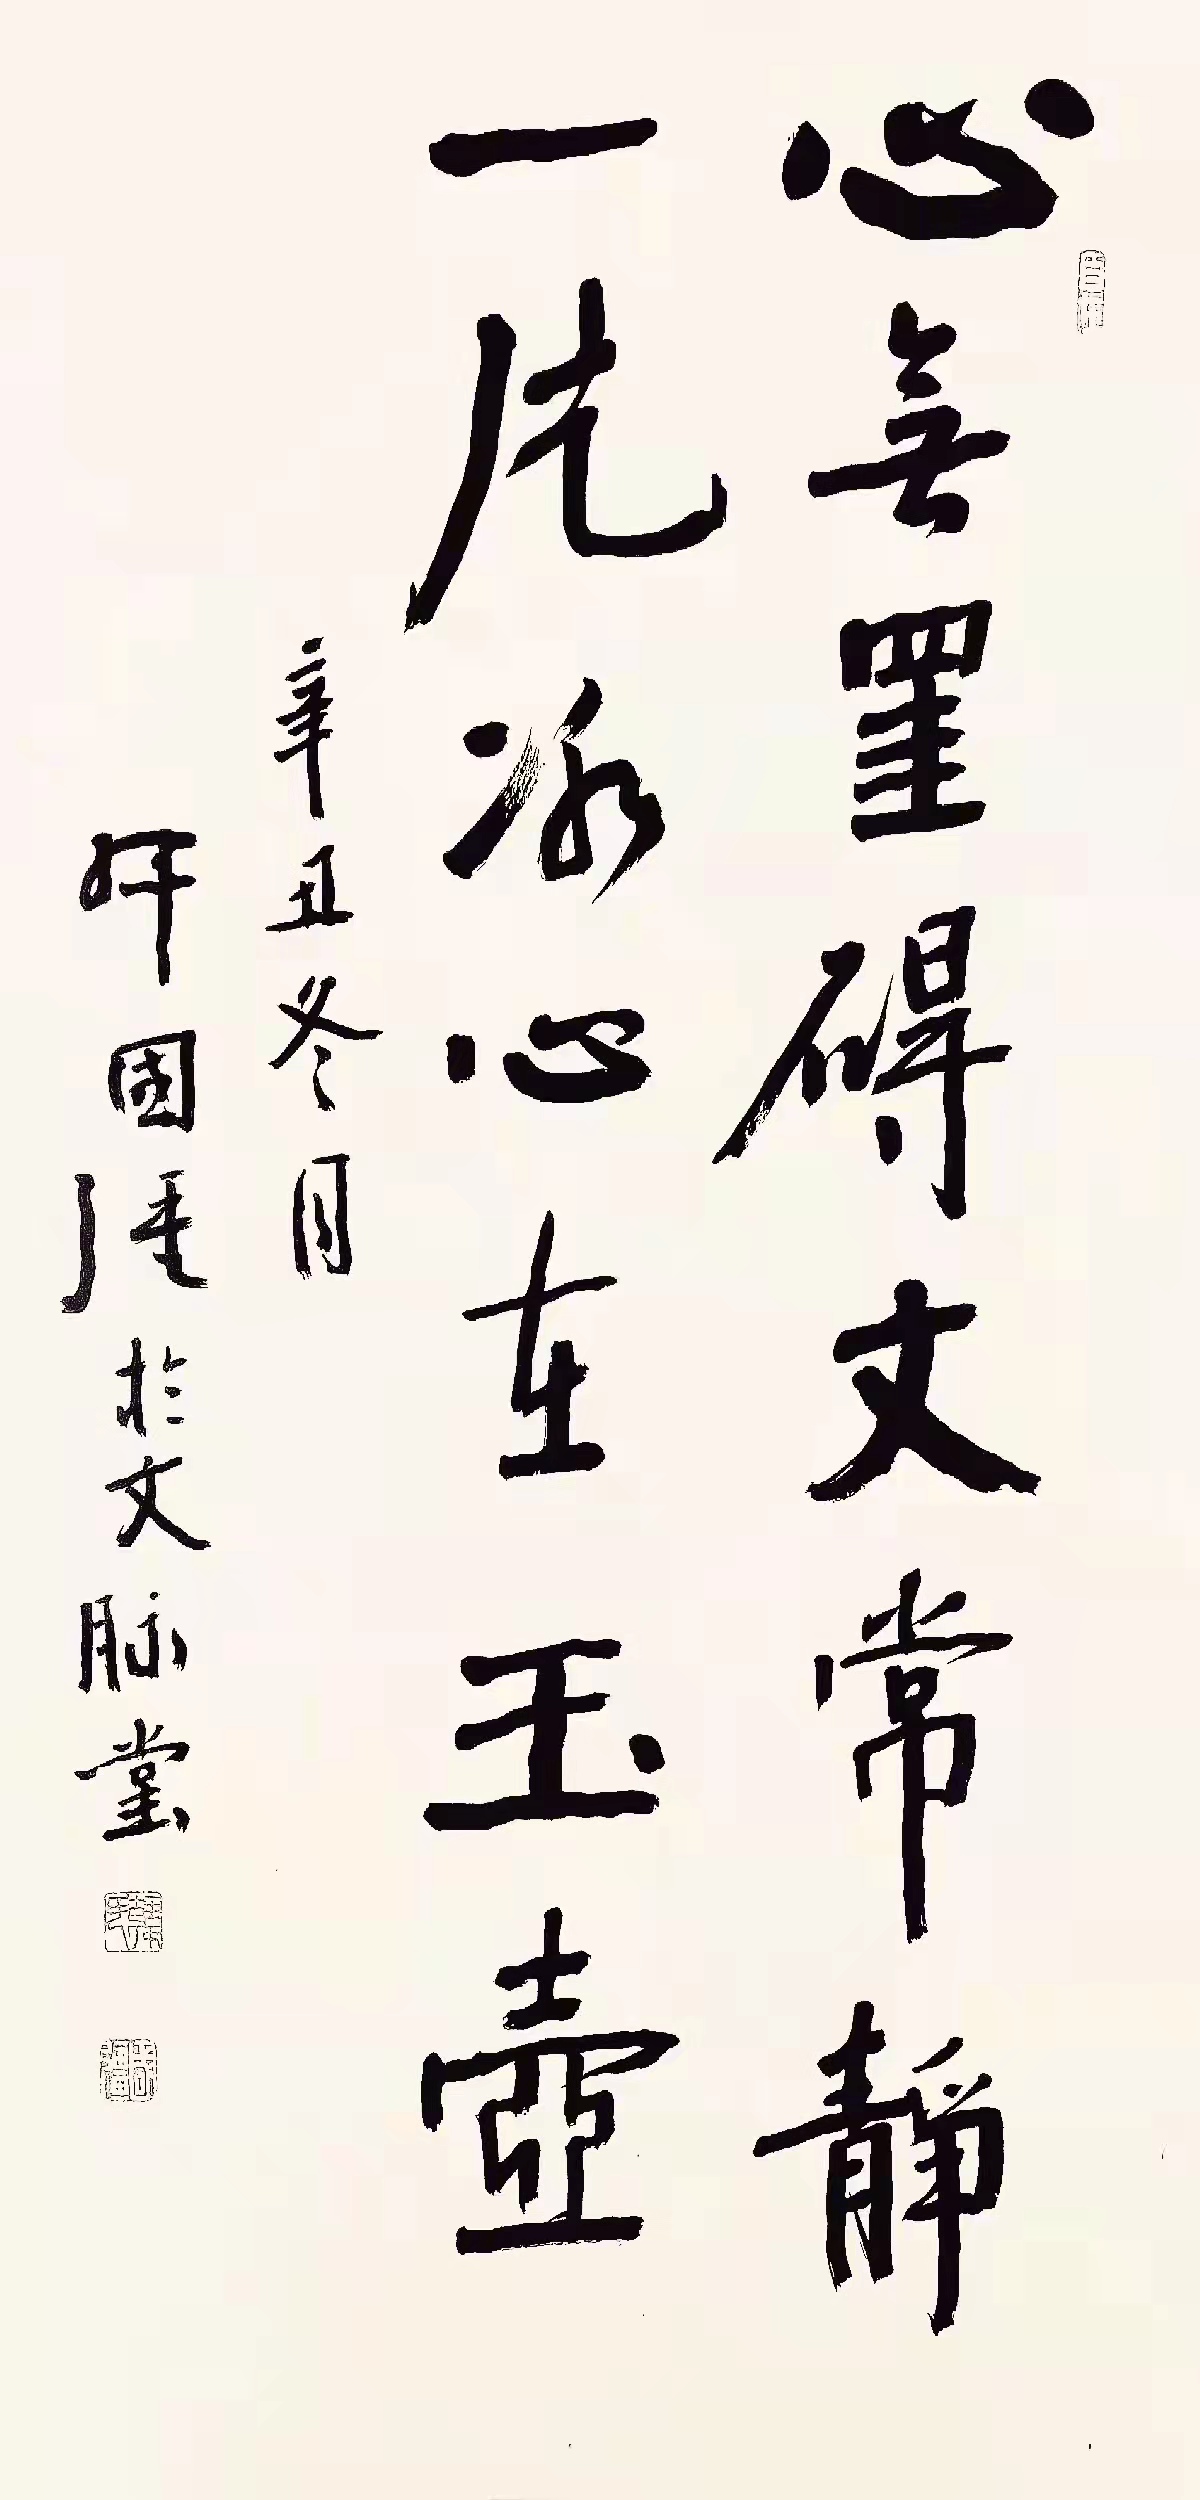 心無罣碍文常靜
一片冰心在玉壺
辛丑冬月
國強於文脉堂